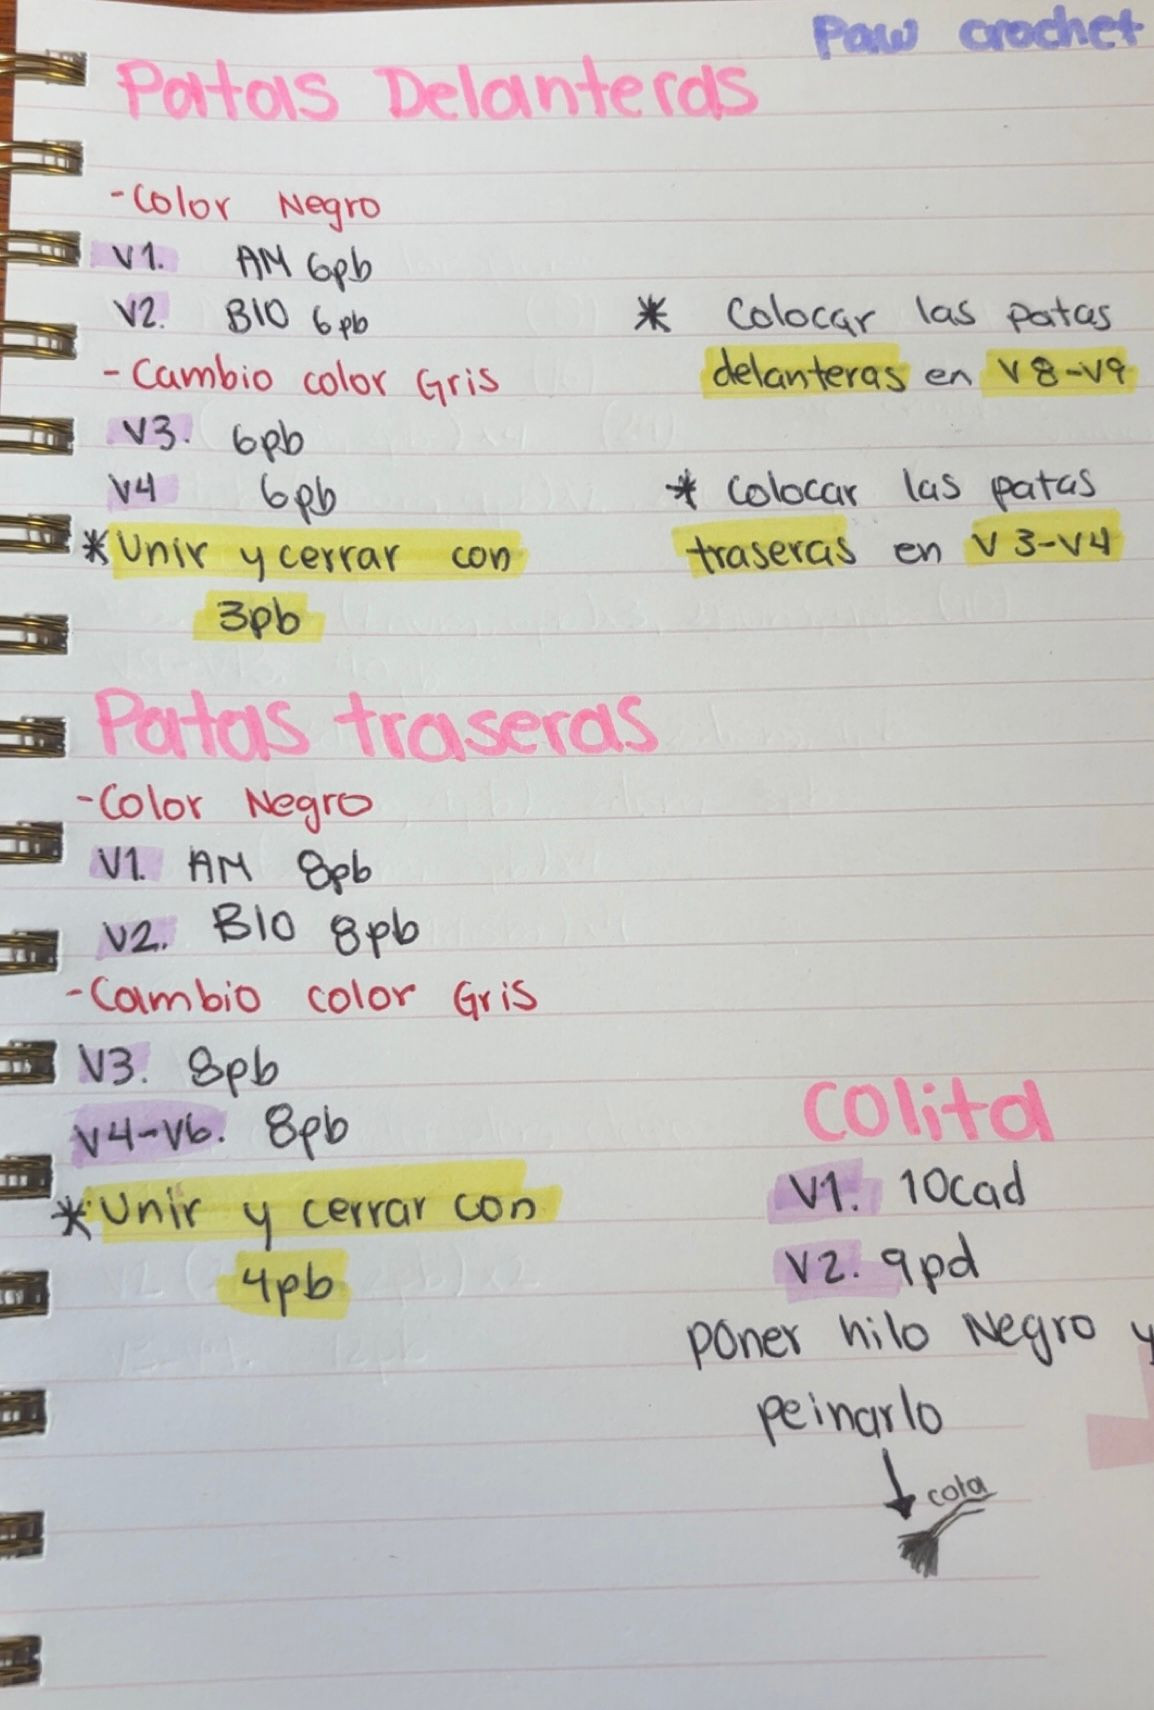 Paw crochet
Patas Delanteras
-Color Negro
V1. AM 6pb
V2. BIO 6pb
-Cambio color Gris
V3. 6pb
V4 6pb
*Unir y cerrar con
3pb
* Colocar las patas
delanteras en V8-V9
* Colocar las patas
traseras en V3-V4
Patas traseras
-Color Negro
V1. AM 8pb
V2. BIO 8pb
-Cambio color Gris
V3. 8pb
V4-V6. 8pb
*Unir y cerrar con
4pb
Colita
V1. 10cad
V2. 9pd
poner hilo Negro y
peinarlo
cola